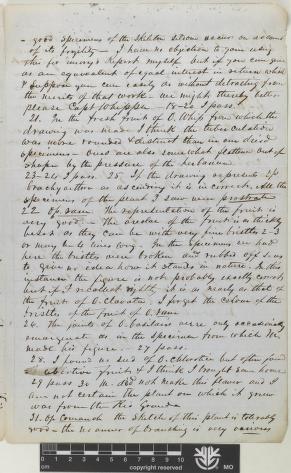 - good specimens of the skeleton seldom occurs on account
of its fragility - I have no objection to your using
this for Emory's Report myself but if you can give
as an equivalent of equal interest in return which
I suppose you can easily as without detracting from
the merit of that work we might thereby better
please Capt Whipple 18-20 I pass.
21. In the fresh fruit of O. Whip from which the
drawing was made I think the tuberculation
was more rounded & distinct than in our dried
specimens - ours are also somewhat flattened out of
shape by the pressure of the herbarium
23-24 I pass. 25. If the drawing represents
brachyarthra as ascending it is incorrect. All the
specimens of the plant I saw were prostrate
22. Of same. The representation of the fruit is
very good - The areolae of the fruit is as thickly
beset as they can be with very fine bristles 2-3
or many in 4 lines long. In the specimens we had
here the bristles were broken and rubbed off so as
to give no idea how it stands in nature. In this
instance the figure is not probably exactly correct
but if I recollect rightly it is as nearly as that of
the fruit of O. clavata. I forget the colour of the
bristles of the fruit of O.
26. The joints of O. basilaris were only occasionally
emarginate as in the specimen from which M.
made his figure - 27 pass.
28. I found no seed of O. chlorotica but often found
abortive fruit & I think I brought some home
29 pass 30 M. did not make this flower and I
am not certain the plant on which it grew
was from the Rio Grande
31. Of the sketch of this plant is tolerably
good - the manner of branching is very various
cm
copyright reserved
MO